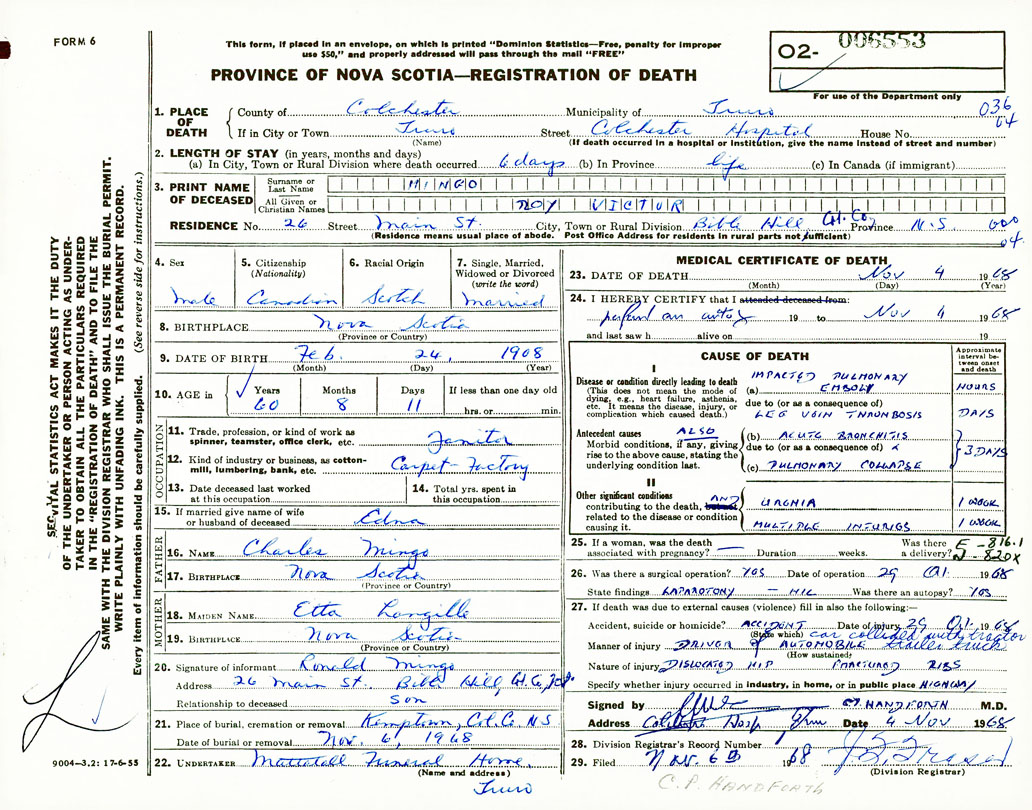 FORM 6
This form, if placed in an envelope, on which is printed "Dominion Statistics—Free, penalty for improper
use $50," and properly addressed will pass through the mail "FREE"
PROVINCE OF NOVA SCOTIA—REGISTRATION OF DEATH
02- 006553
For use of the Department only
036
04
1. PLACE OF DEATH County of Colchester Municipality of Truro
If in City or Town Truro Street Colchester Hospital House No.
(Name) (If death occurred in a hospital or institution, give the name instead of street and number)
2. LENGTH OF STAY (in years, months and days)
(a) In City, Town or Rural Division where death occurred 6 days (b) In Province life (c) In Canada (if immigrant)
3. PRINT NAME OF DECEASED
Surname or Last Name MINGO
All Given or Christian Names ROY VICTOR
RESIDENCE No. 26 Street Main St. City, Town or Rural Division Bible Hill, Col. Co. Province N.S.
(Residence means usual place of abode. Post Office Address for residents in rural parts not sufficient)
04.
4. Sex
male
5. Citizenship
(Nationality)
Canadian
6. Racial Origin
Scotch
7. Single, Married,
Widowed or Divorced
(write the word)
married
8. BIRTHPLACE Nova Scotia
(Province or Country)
9. DATE OF BIRTH Feb. 24, 1908
(Month) (Day) (Year)
10. AGE in Years Months Days If less than one day old
60 8 11 hrs. or min.
OCCUPATION
11. Trade, profession, or kind of work as
spinner, teamster, office clerk, etc. Janitor
12. Kind of industry or business, as cotton-
mill, lumbering, bank, etc. Carpet-Factory
13. Date deceased last worked
at this occupation
14. Total yrs. spent in
this occupation
15. If married give name of wife
or husband of deceased Edna
FATHER
16. NAME Charles Mingo
17. BIRTHPLACE Nova Scotia
(Province or Country)
MOTHER
18. MAIDEN NAME Etta Langille
19. BIRTHPLACE Nova Scotia
(Province or Country)
20. Signature of informant Ronald Mingo
Address 26 Main St. Bible Hill, Col. Co.
Relationship to deceased son
21. Place of burial, cremation or removal Kemptown, Col. Co. N S
Date of burial or removal Nov. 6, 1968
22. UNDERTAKER Mattatall Funeral Home,
(Name and address)
Truro
MEDICAL CERTIFICATE OF DEATH
23. DATE OF DEATH Nov 4 1968
(Month) (Day) (Year)
24. I HEREBY CERTIFY that I attended deceased from:
19 to Nov 4 1968
and last saw h alive on 19
CAUSE OF DEATH
Approximate
interval be-
tween onset
and death
I
Disease or condition directly leading to death
(This does not mean the mode of
dying, e.g., heart failure, asthenia,
etc. It means the disease, injury, or
complication which caused death.)
IMPACTED PULMONARY
(a) EMBOLI HOURS
due to (or as a consequence of)
LEG VEIN THROMBOSIS DAYS
Antecedent causes ALSO
Morbid conditions, if any, giving
rise to the above cause, stating the
underlying condition last.
(b) ACUTE BRONCHITIS
due to (or as a consequence of) &
(c) PULMONARY COLLAPSE
3 DAYS
II
Other significant conditions
contributing to the death, AND
related to the disease or condition
causing it.
UREMIA 1 WEEK
MULTIPLE INJURIES 1 WEEK
25. If a woman, was the death
associated with pregnancy? — Duration weeks. Was there
a delivery?
E -816.1
N -820X
26. Was there a surgical operation? YES Date of operation 29 Oct. 1968
State findings LAPAROTOMY — NIL Was there an autopsy? YES
27. If death was due to external causes (violence) fill in also the following:—
Accident, suicide or homicide? ACCIDENT Date of injury 29 Oct. 1968
(State which) car collided with tractor
Manner of injury DRIVER of AUTOMOBILE trailer truck
(How sustained)
Nature of injury DISLOCATED HIP FRACTURED RIBS
Specify whether injury occurred in industry, in home, or in public place HIGHWAY
Signed by C.P. HANDFORTH M.D.
Address Colchester Hosp Truro Date 4 NOV 1968
28. Division Registrar's Record Number
29. Filed Nov. 6th 1968
(Division Registrar)
C.P. HANDFORTH
SEC. VITAL STATISTICS ACT MAKES IT THE DUTY
OF THE UNDERTAKER OR PERSON ACTING AS UNDER-
TAKER TO OBTAIN ALL THE PARTICULARS REQUIRED
IN THE "REGISTRATION OF DEATH" AND TO FILE THE
SAME WITH THE DIVISION REGISTRAR WHO SHALL ISSUE THE BURIAL PERMIT.
WRITE PLAINLY WITH UNFADING INK. THIS IS A PERMANENT RECORD.
Every item of information should be carefully supplied. (See reverse side for instructions.)
9004—3,2: 17-6-55